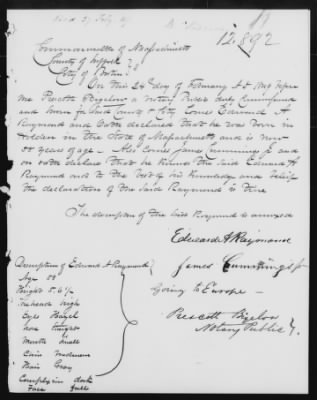 12.892
Commonwealth of Massachusetts
County of Suffolk } ss
City of Boston
On this 24th day of February A.D. 1849 before
me Prescott Bigelow a notary Public duly Commissioned
and sworn for said County & City Comes Edward A.
Raymond and doth declared that he was born in
Holden in the State of Massachusetts and is now
58 years of age - Also Comes James Cummings Jr and
on oath declares that he knows the said Edward A
Raymond and to the best of his knowledge and belief
the declaration of the said Raymond is true
The description of the said Raymond is annexed
Edward A Raymond
James Cummings Jr
Going to Europe -
Prescott Bigelow
Notary Public }
Description of Edward A Raymond
Age 58
Height 5. 6 1/2
Forehead high
Eyes Hazel
nose straight
Mouth small
Chin Medium
Hair Gray
Complexion dark
Face full